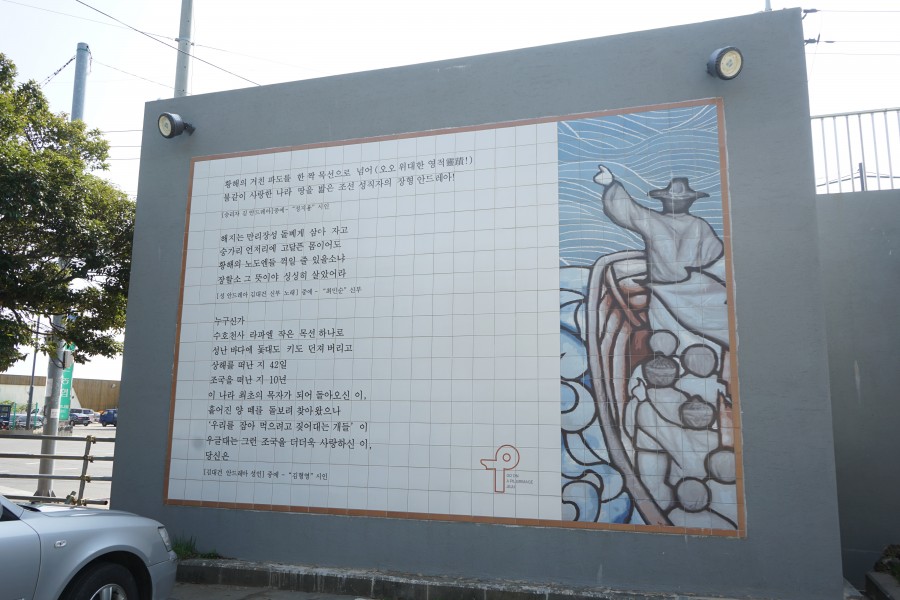 황해의 거친 파도를 한 짝 목선으로 넘어(오오 위대한 영적靈蹟!)
불같이 사랑한 나라 땅을 밟은 조선 성직자의 장형 안드레아!
[승리자 김 안드레아]중에- "정지용" 시인
해지는 만리장성 돌베게 삼아 자고
숭가리 언저리에 고달픈 몸이어도
황해의 노도엔들 꺽일 줄 있을소냐
장할손 그 뜻이야 싱싱히 살았어라
[성 안드레아 김대건 신부 노래] 중에- "최민순" 신부
누구신가
수호천사 라파엘 작은 목선 하나로
성난 바다에 돛대도 키도 던져 버리고
상해를 떠난 지 42일
조국을 떠난 지 10년
이 나라 최초의 목자가 되어 돌아오신 이,
흩어진 양 떼를 돌보려 찾아왔으나
'우리를 잡아 먹으려고 짖어대는 개들' 이
우글대는 그런 조국을 더더욱 사랑하신 이,
당신은
[김대건 안드레아 성인] 중에 - "김형영" 시인